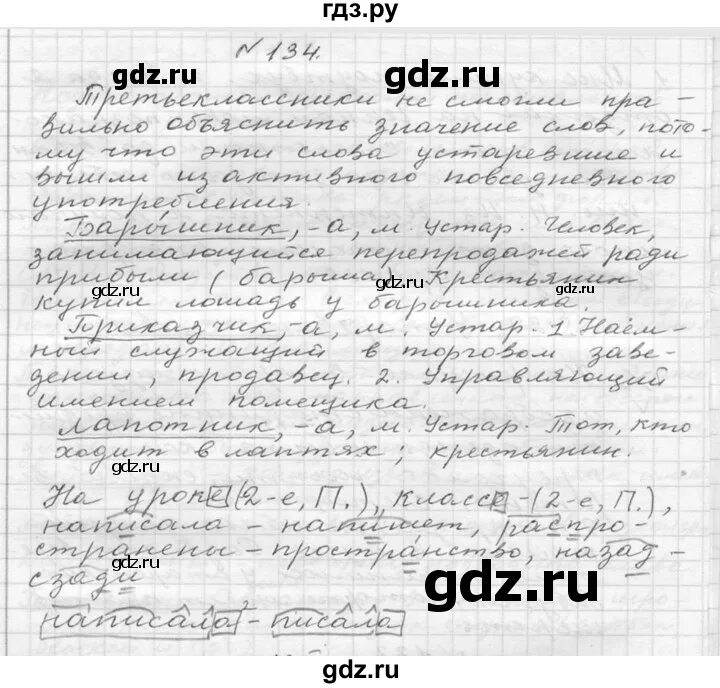 гдз.ру
№ 134.
Третьеклассники не смогли пра-
вильно объяснить значение слов, пото-
му что эти слова устаревшие и
вышли из активного повседневного
употребления.
Барышник, -а, м. Устар. Человек,
занимающийся перепродажей ради
прибыли (барыша). Крестьянин
купил лошадь у барышника.
Приказчик, -а, м. Устар. 1 Наём-
ный служащий в торговом заве-
дении, продавец. 2. Управляющий
имением помещика.
Лапотник, -а, м. Устар. Тот, кто
ходит в лаптях; крестьянин.
На уроке (2-е, П.), классе -(2-е, П.),
написала - напишет, распро-
странены - пространство, назад -
сзади
написала - писала
gdz.ru
gdz.ru
gdz.ru
gdz.ru
gdz.ru
gdz.ru
gdz.ru
gdz.ru
gdz.ru
gdz.ru
gdz.ru
gdz.ru